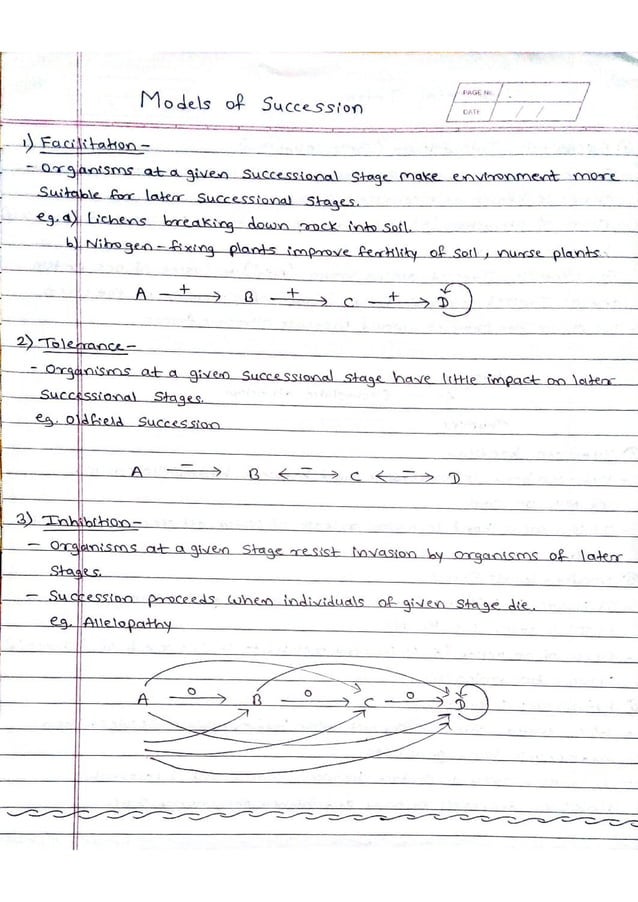 Models of Succession
PAGE No.
DATE
1) Facilitation -
- Organisms at a given successional stage make environment more
suitable for later successional stages.
eg. a) Lichens breaking down rock into soil.
b) Nitrogen - fixing plants improve fertility of soil, nurse plants.
A + B + C + D
2) Tolerance -
- Organisms at a given successional stage have little impact on later
successional stages.
eg. Oldfield succession
A - B - C - D
3) Inhibition -
- Organisms at a given stage resist invasion by organisms of later
stages.
- Succession proceeds when individuals of given stage die.
eg. Allelopathy
A 0 B 0 C 0 D